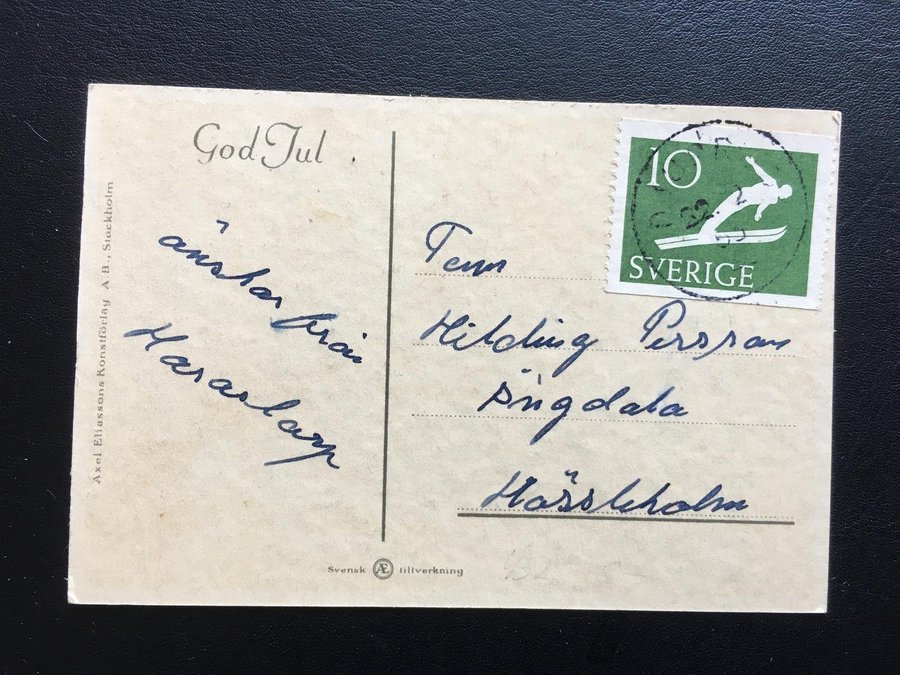 God Jul
önskar från
Hararlarp
Axel Eliassons Konstförlag A.B., Stockholm
10
SVERIGE
Fam
Hilding Persson
Ängdala
Hässleholm
Svensk Æ tillverkning